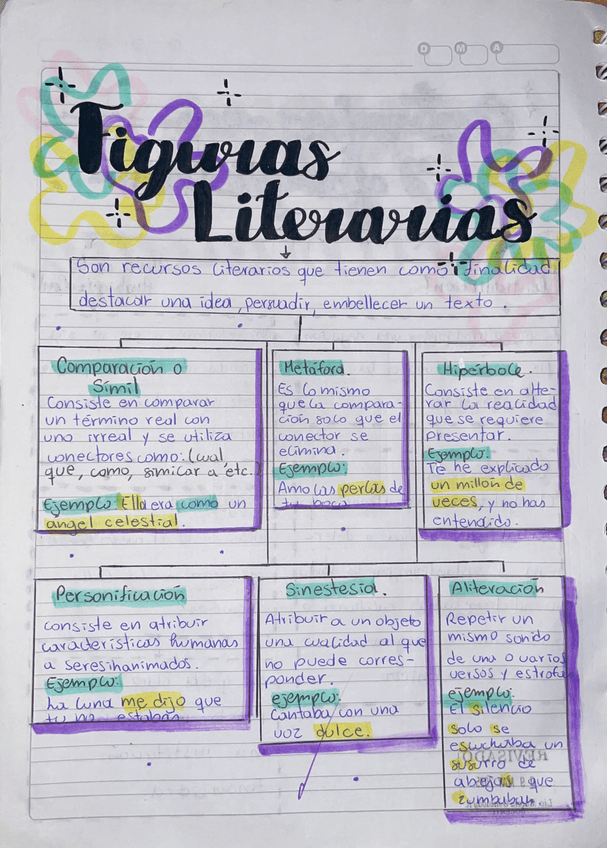 D M A
Figuras
Literarias
Son recursos literarios que tienen como finalidad
destacar una idea, persuadir, embellecer un texto.
Comparación o
Símil
Consiste en comparar
un término real con
uno irreal y se utiliza
conectores como: (cual,
que, como, similar a etc.)
Ejemplo: Ella era como un
ángel celestial.
Metáfora.
Es lo mismo
que la compara-
ción solo que el
conector se
elimina.
Ejemplo:
Amo las perlas de
tu boca
Hipérbole.
Consiste en alte-
rar la realidad
que se requiere
presentar.
Ejemplo:
Te he explicado
un millón de
veces, y no has
entendido.
Personificación
consiste en atribuir
características humanas
a seres ihanimados.
Ejemplo:
La luna me dijo que
tu no estabas
Sinestesia.
Atribuir a un objeto
una cualidad al que
no puede corres-
ponder.
ejemplo:
Cantaba con una
voz dulce.
Aliteración
Repetir un
mismo sonido
de una o varios
versos y estrofa
ejemplo:
El silencio
solo se
escuchaba un
susurro de
abejas que
zumbaban
REVISADO